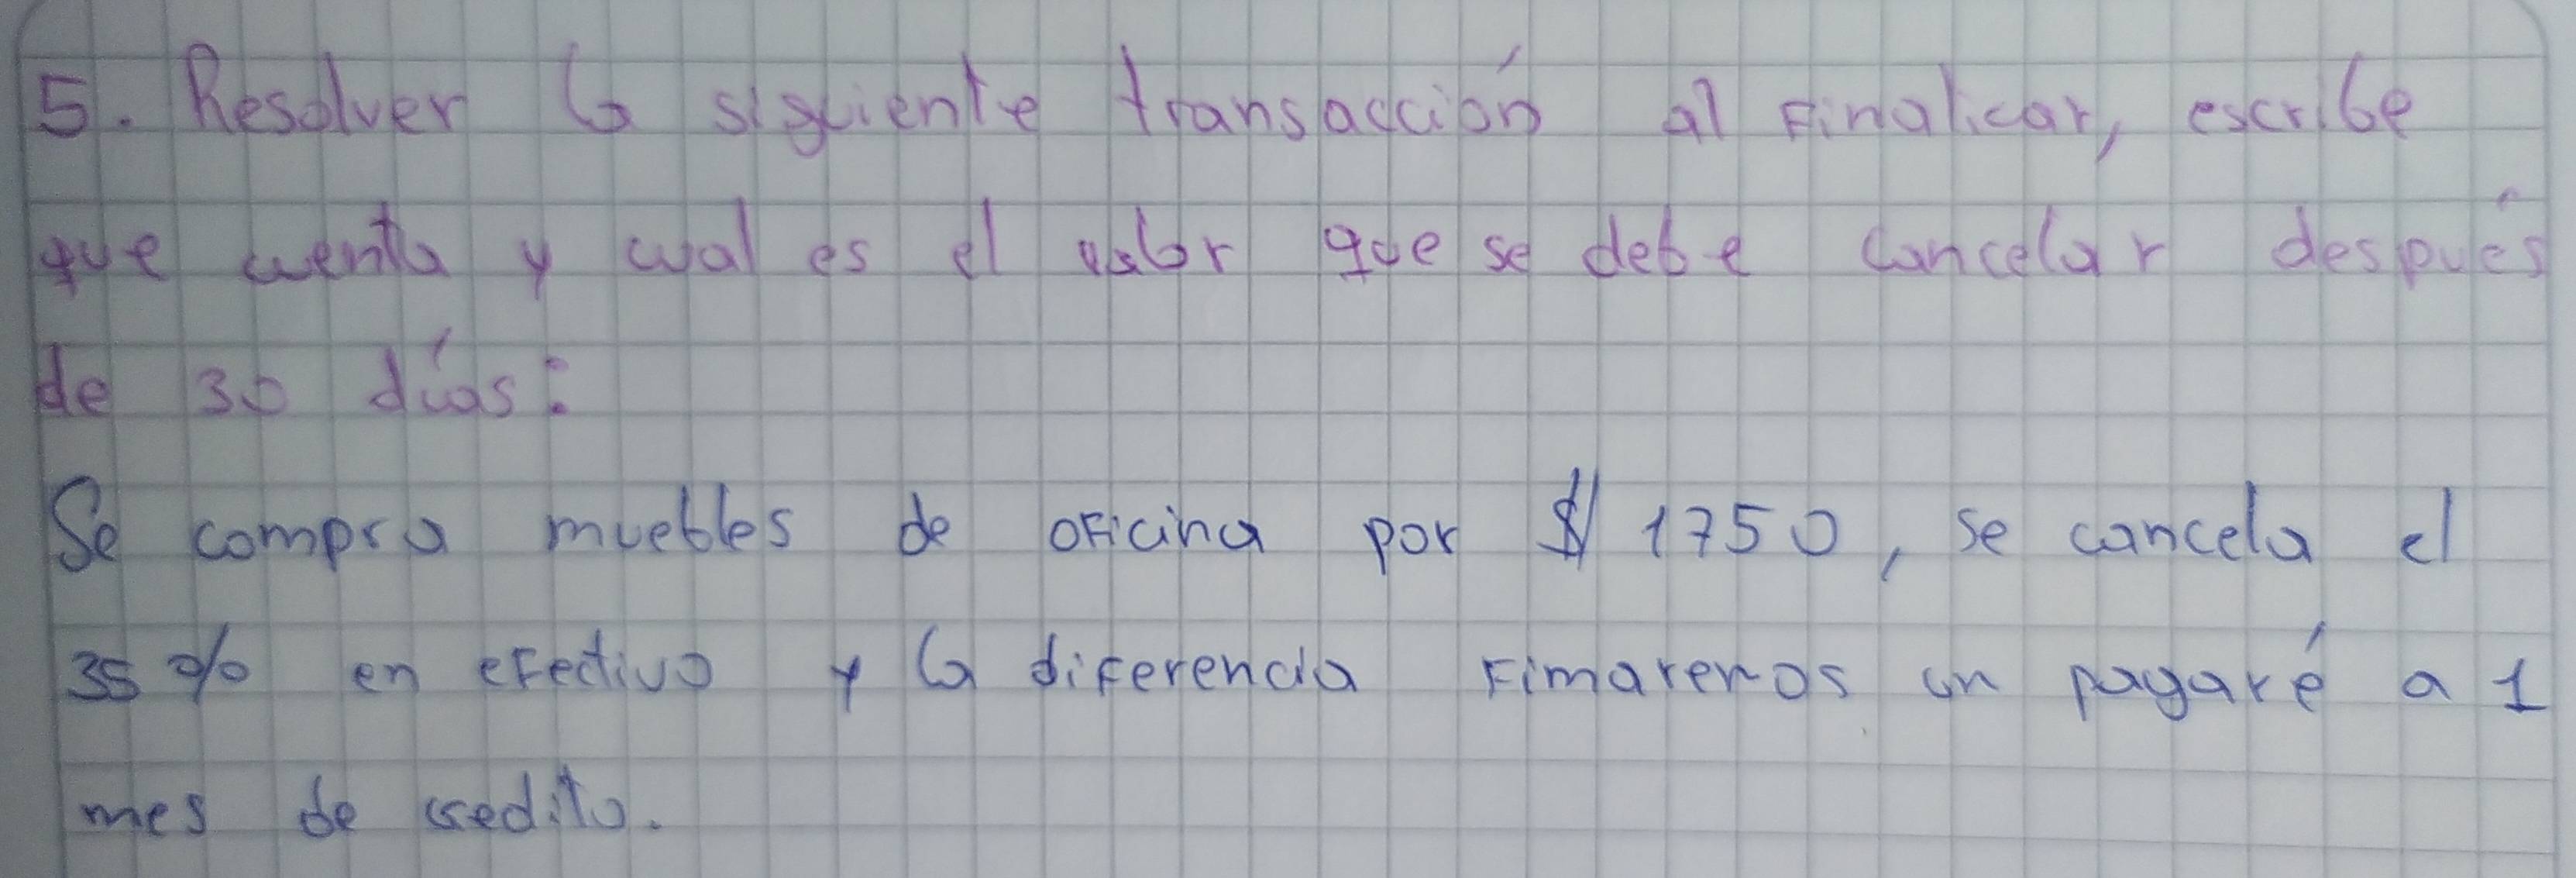 5. Resolver la siguiente transacción al finalicar, escribe
que cuenta y cual es el valor que se debe cancelar después
de 30 días:
Se compra muebles de oficina por $ 1750, se cancela el
35 % en efectivo y la diferencia fimaremos un pagaré a 1
mes de credito.